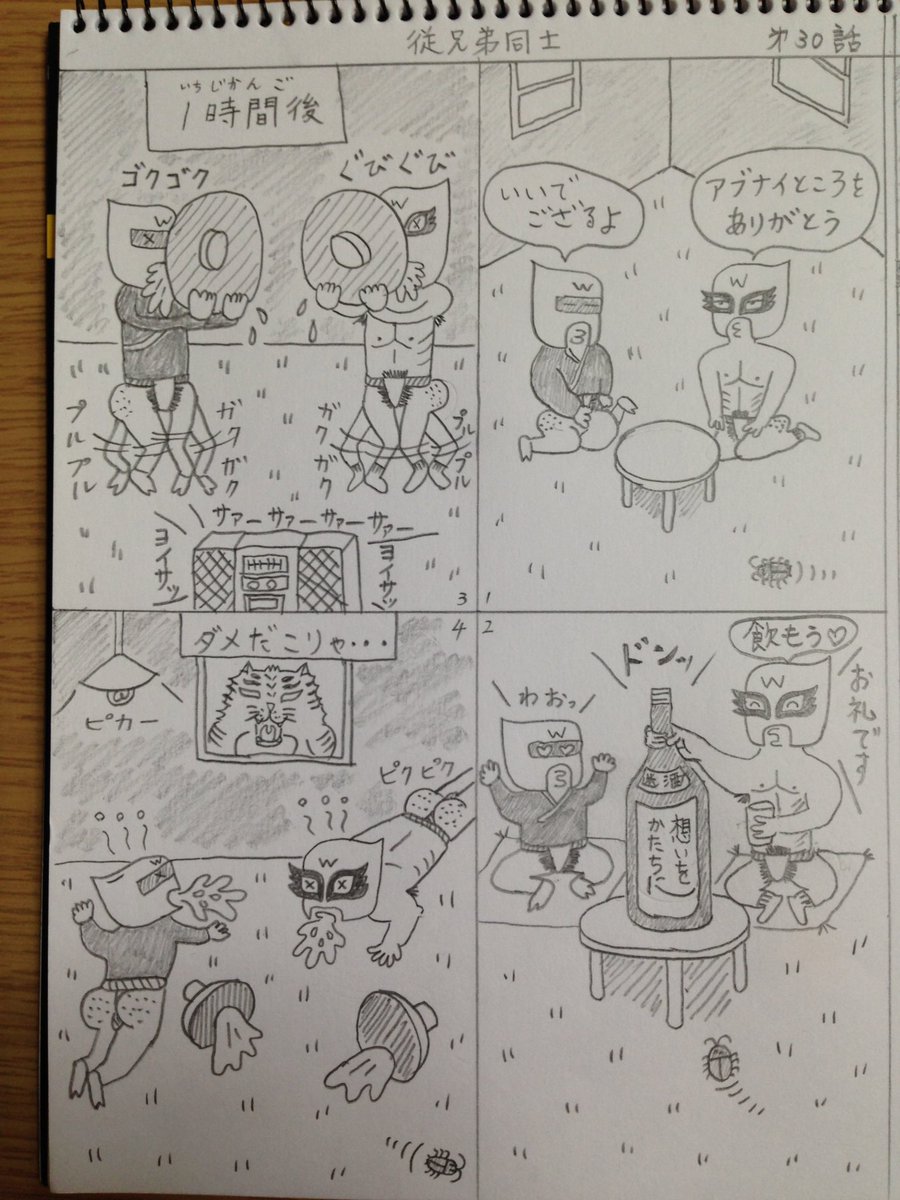 従兄弟同士
第30話
アブナイところを
ありがとう
いいで
ござるよ
W
W
1
2
飲もう♡
お礼です
ドンッ
わおっ
W
W
迷酒
想いを
かたちに
いちじかんご
1時間後
ぐびぐび
ゴクゴク
W
W
プルプル
ガクガク
ガクガク
プルプル
サァーサァーサァーサァー
ヨイサッ
ヨイサッ
3
4
ダメだこりゃ・・・
ピカー
ピクピク
W
W